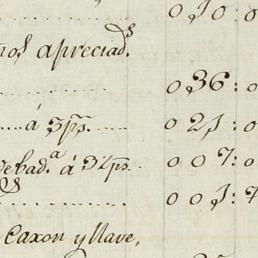 010:0
ños apreciad.s
036:0
á 3p.s 021:0
Cebad.a á 3½p.s 007:0
001:7
Caxon y llave,